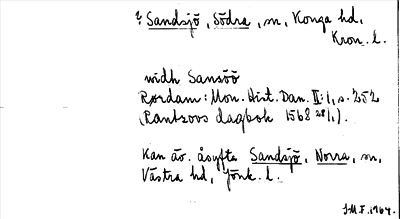 ? Sandsjö, Södra, sn, Konga hd,
Kron. l.
widh Sansöö
Rørdam: Mon. Hist. Dan. II:1, s. 252
(Rantzovs dagbok 1568 28/1).
Kan äv. åsyfta Sandsjö, Norra, sn,
Västra hd, Jönk. l.
I.M.F. 1964.